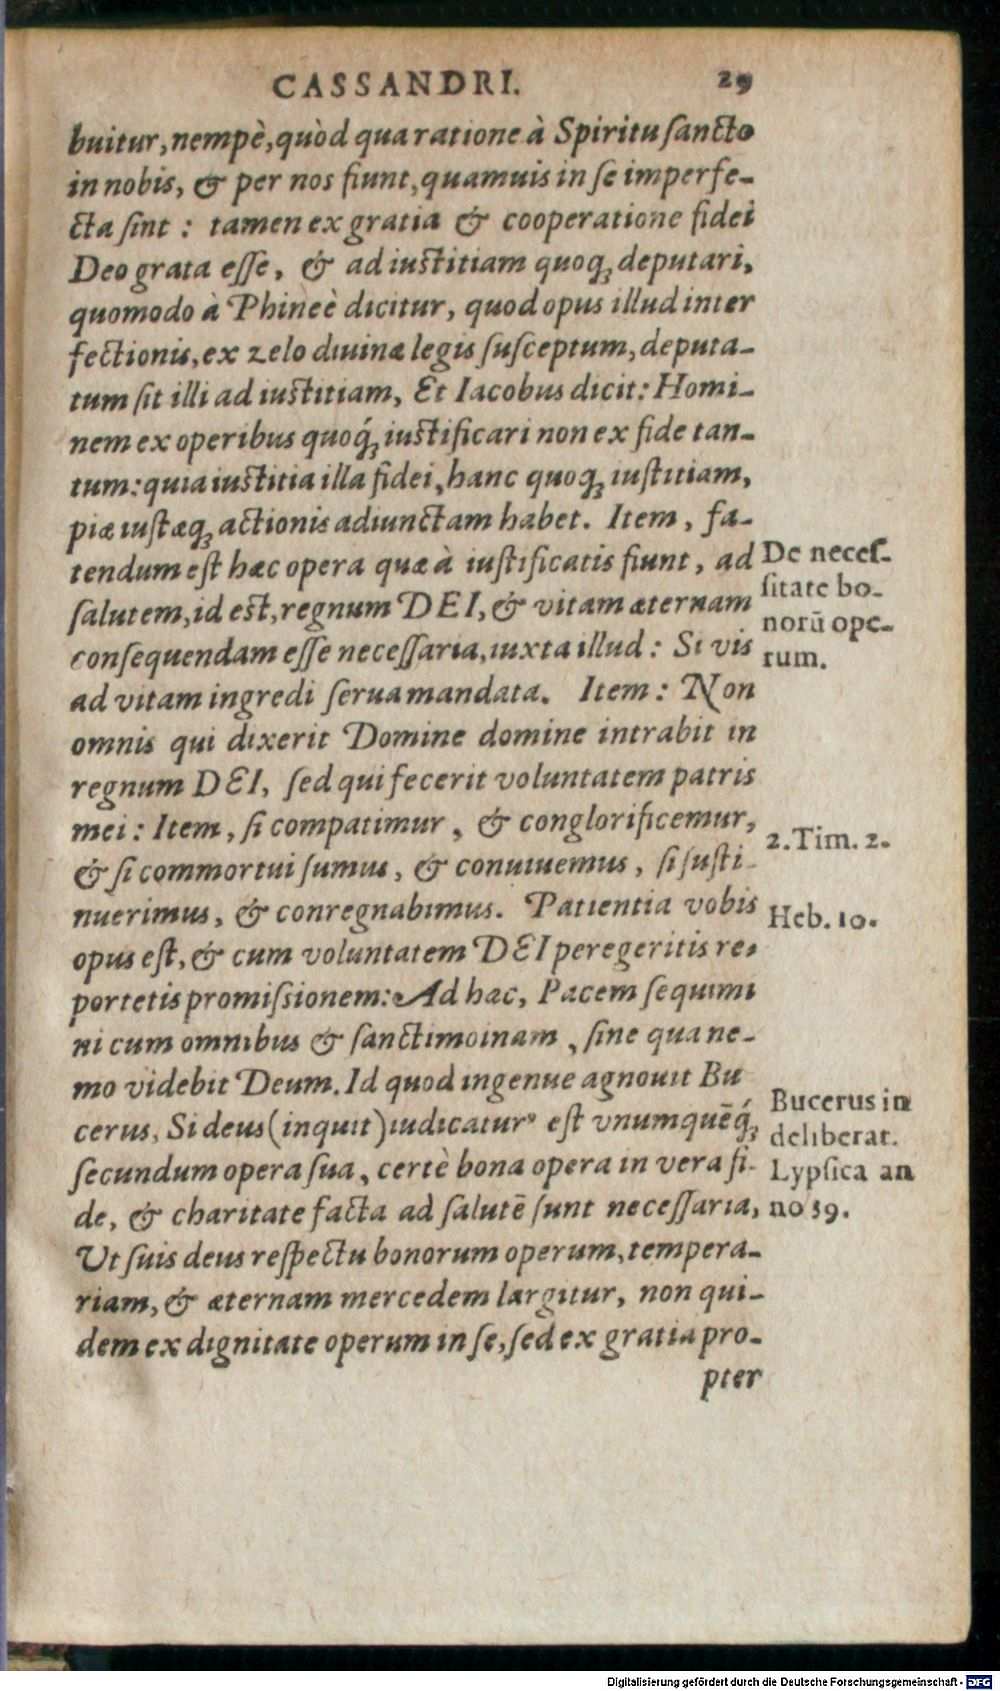 CASSANDRI. 29
buitur, nempè, quòd qua ratione à Spiritu sancto
in nobis, & per nos fiunt, quamuis in se imperfe-
cta sint : tamen ex gratia & cooperatione fidei
Deo grata esse, & ad iustitiam quoq; deputari,
quomodo à Phineè dicitur, quod opus illud inter
fectionis, ex zelo diuinæ legis susceptum, deputa-
tum sit illi ad iustitiam, Et Iacobus dicit: Homi-
nem ex operibus quoq́; iustificari non ex fide tan-
tum: quia iustitia illa fidei, hanc quoq; iustitiam,
piæ iustæq; actionis adiunctam habet. Item, fa-
tendum est hæc opera quæ à iustificatis fiunt, ad
salutem, id est, regnum DEI, & vitam æternam
consequendam esse necessaria, iuxta illud : Si vis
ad vitam ingredi serua mandata. Item : Non
omnis qui dixerit Domine domine intrabit in
regnum DEI, sed qui fecerit voluntatem patris
mei : Item, si compatimur, & conglorificemur,
& si commortui sumus, & conuiuemus, si susti-
nuerimus, & conregnabimus. Patientia vobis
opus est, & cum voluntatem DEI peregeritis re-
portetis promissionem: Ad hac, Pacem sequimi
ni cum omnibus & sanctimoinam, sine qua ne-
mo videbit Deum. Id quod ingenue agnouit Bu
cerus, Si deus (inquit) iudicaturꝰ est vnumquēq́;
secundum opera sua, certè bona opera in vera fi-
de, & charitate facta ad salutē sunt necessaria,
Ut suis deus respectu bonorum operum, tempera-
riam, & æternam mercedem largitur, non qui-
dem ex dignitate operum in se, sed ex gratia pro-
pter
De neces-
sitate bo-
norū ope-
rum.
2. Tim. 2.
Heb. 10.
Bucerus in
deliberat.
Lypsica an
no 39.
Digitalisierung gefördert durch die Deutsche Forschungsgemeinschaft - DFG